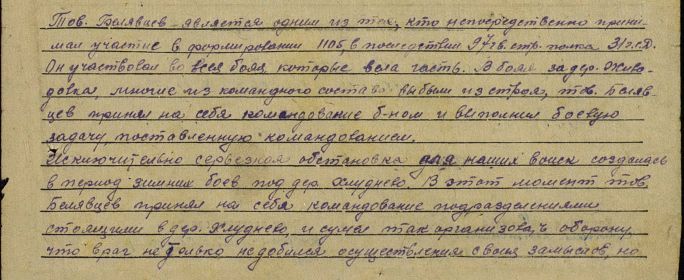 Тов. Белявцев является одним из тех, кто непосредственно прини-
мал участие в формировании 1105, в последствии 97 гв. стр. полка 31 г.с.д.
Он участвовал во всех боях, которые вела часть. В боях за дер.
довка, многие из командного состава выбыли из строя, тов. Беляв-
цев принял на себя командование б-ном и выполнил боевую
задачу, поставленную командованием.
Исключительно серьезная обстановка для наших войск создалась
в период зимних боев под дер. Хлуднево. В этот момент тов.
Белявцев принял на себя командование подразделениями
стоящими в дер. Хлуднево, и сумел так организовать оборону,
что враг не только недобился осуществления своих замыслов, но